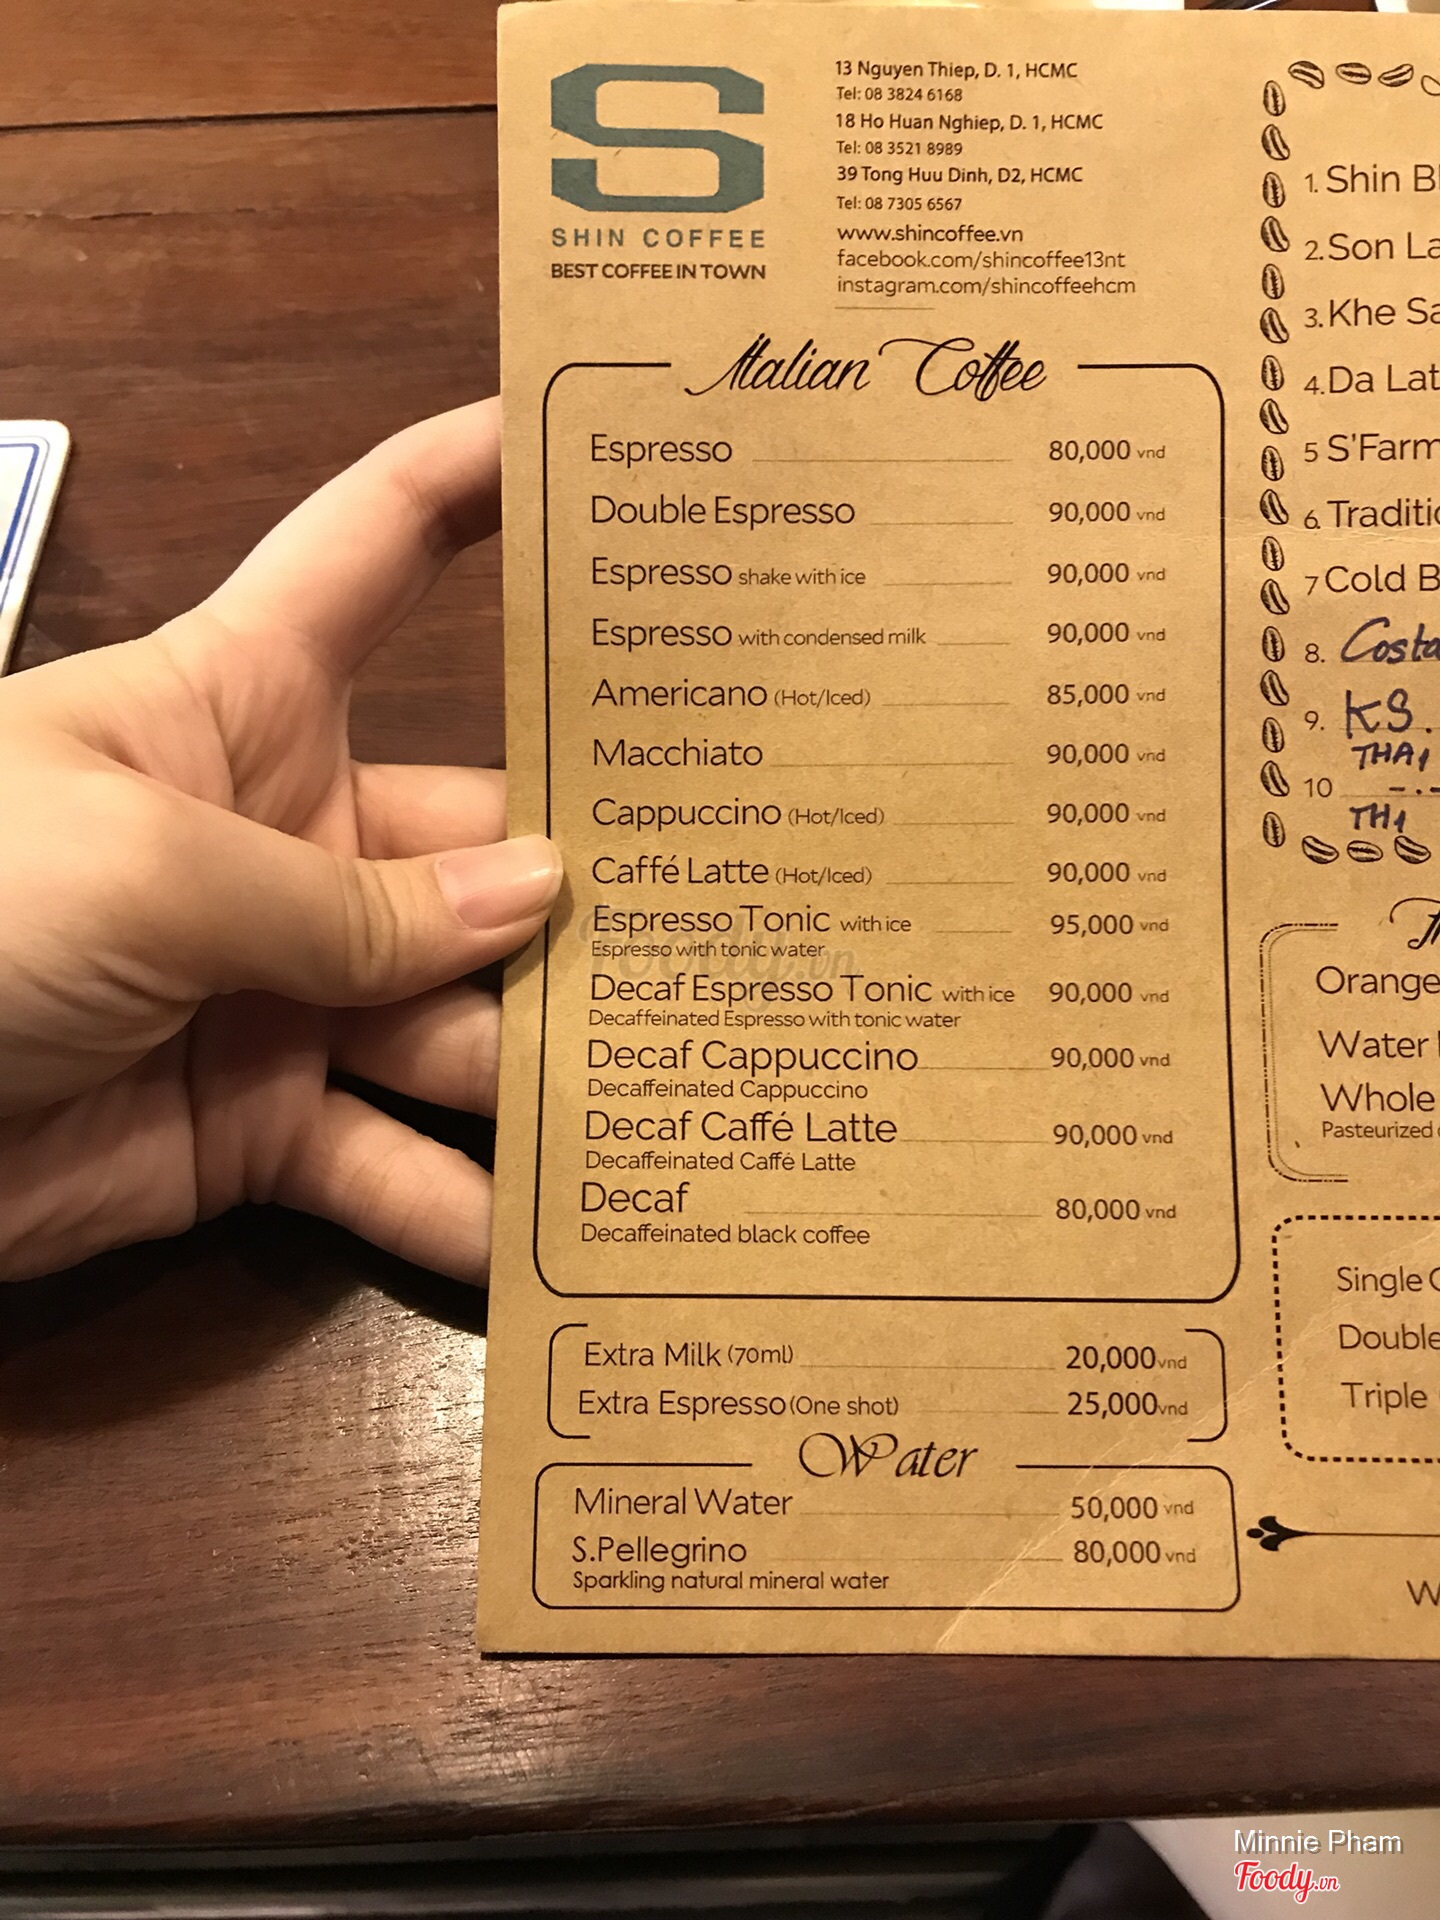 S
SHIN COFFEE
BEST COFFEE IN TOWN
13 Nguyen Thiep, D. 1, HCMC
Tel: 08 3824 6168
18 Ho Huan Nghiep, D. 1, HCMC
Tel: 08 3521 8989
39 Tong Huu Dinh, D2, HCMC
Tel: 08 7305 6567
www.shincoffee.vn
facebook.com/shincoffee13nt
instagram.com/shincoffeehcm
Italian Coffee
Espresso 80,000 vnd
Double Espresso 90,000 vnd
Espresso shake with ice 90,000 vnd
Espresso with condensed milk 90,000 vnd
Americano (Hot/Iced) 85,000 vnd
Macchiato 90,000 vnd
Cappuccino (Hot/Iced) 90,000 vnd
Caffé Latte (Hot/Iced) 90,000 vnd
Espresso Tonic with ice 95,000 vnd
Espresso with tonic water
Decaf Espresso Tonic with ice 90,000 vnd
Decaffeinated Espresso with tonic water
Decaf Cappuccino 90,000 vnd
Decaffeinated Cappuccino
Decaf Caffé Latte 90,000 vnd
Decaffeinated Caffé Latte
Decaf 80,000 vnd
Decaffeinated black coffee
Extra Milk (70ml) 20,000 vnd
Extra Espresso (One shot) 25,000 vnd
Water
Mineral Water 50,000 vnd
S.Pellegrino 80,000 vnd
Sparkling natural mineral water
1. Shin
2. Son
3. Khe
4. Da Lat
5 S'Farm
6.
7 Cold
8.
9. KS.
THAI
10
Orange
Water
Whole
Pasteurized
Single
Double
Triple
Foody.vn
Minnie Pham
Foody.vn